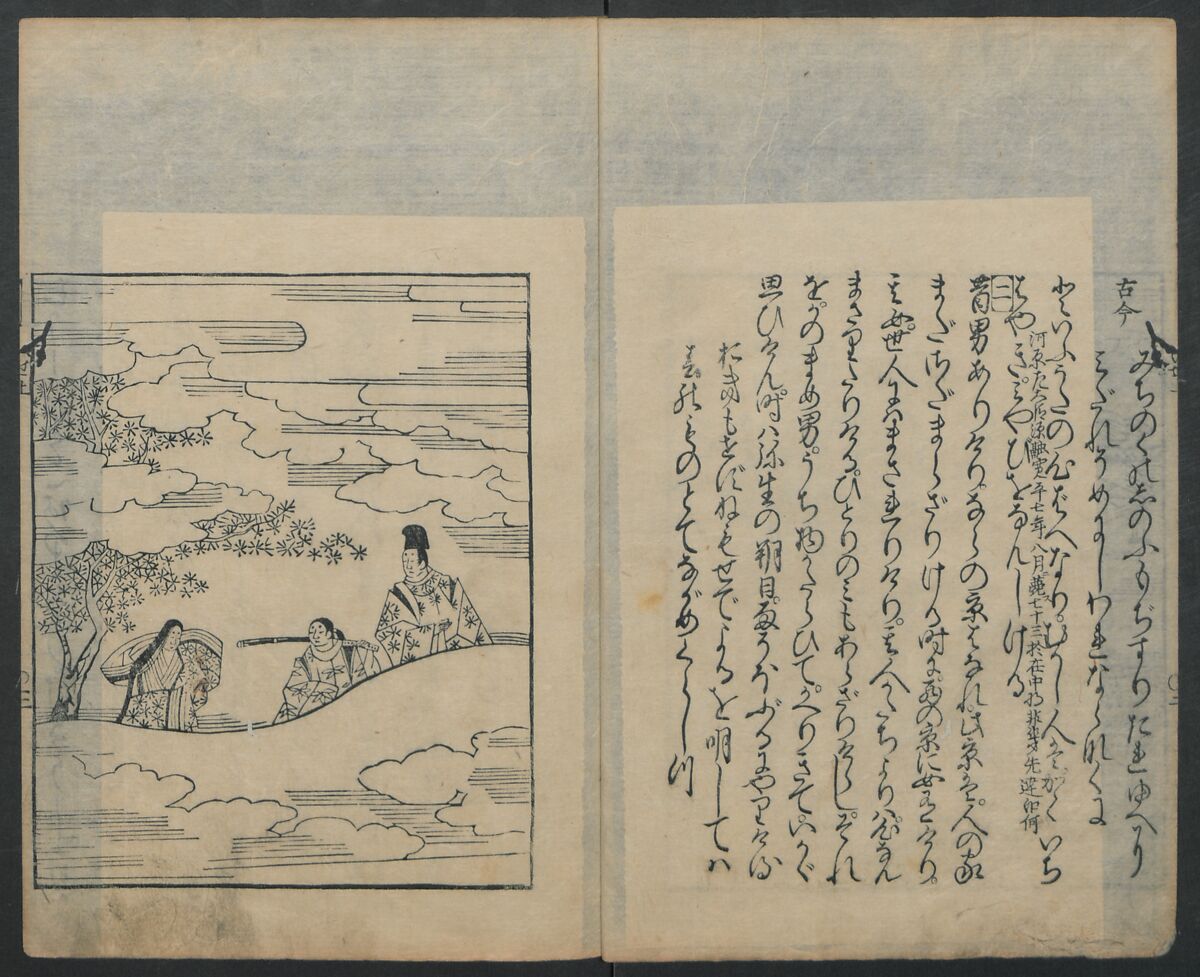 古今
みちのくのしのぶもぢずりたれゆへに
みだれそめにしわれならなくに
といふうたの心ばへなり。むかし人はかくいち
はやきみやびをなんしける
河原左大臣源融寛平七年八月薨七十三於在中将非幾先達如何
二
昔男ありけり。ならの京はなれ此京は。人の家
まださだまらざりける時に。西の京に女有けり。
其女。世人にはまされりけり。其人かたちよりは心なん
まさりたりける。ひとりのみもあらざりけらし。それ
をかのまめ男。うち物かたらひて。かへりきて。いかゞ
思ひけん。時は弥生の朔日。雨そをふるにやりける
おきもせずねもせでよるを明しては
春のものとてながめくらしつ